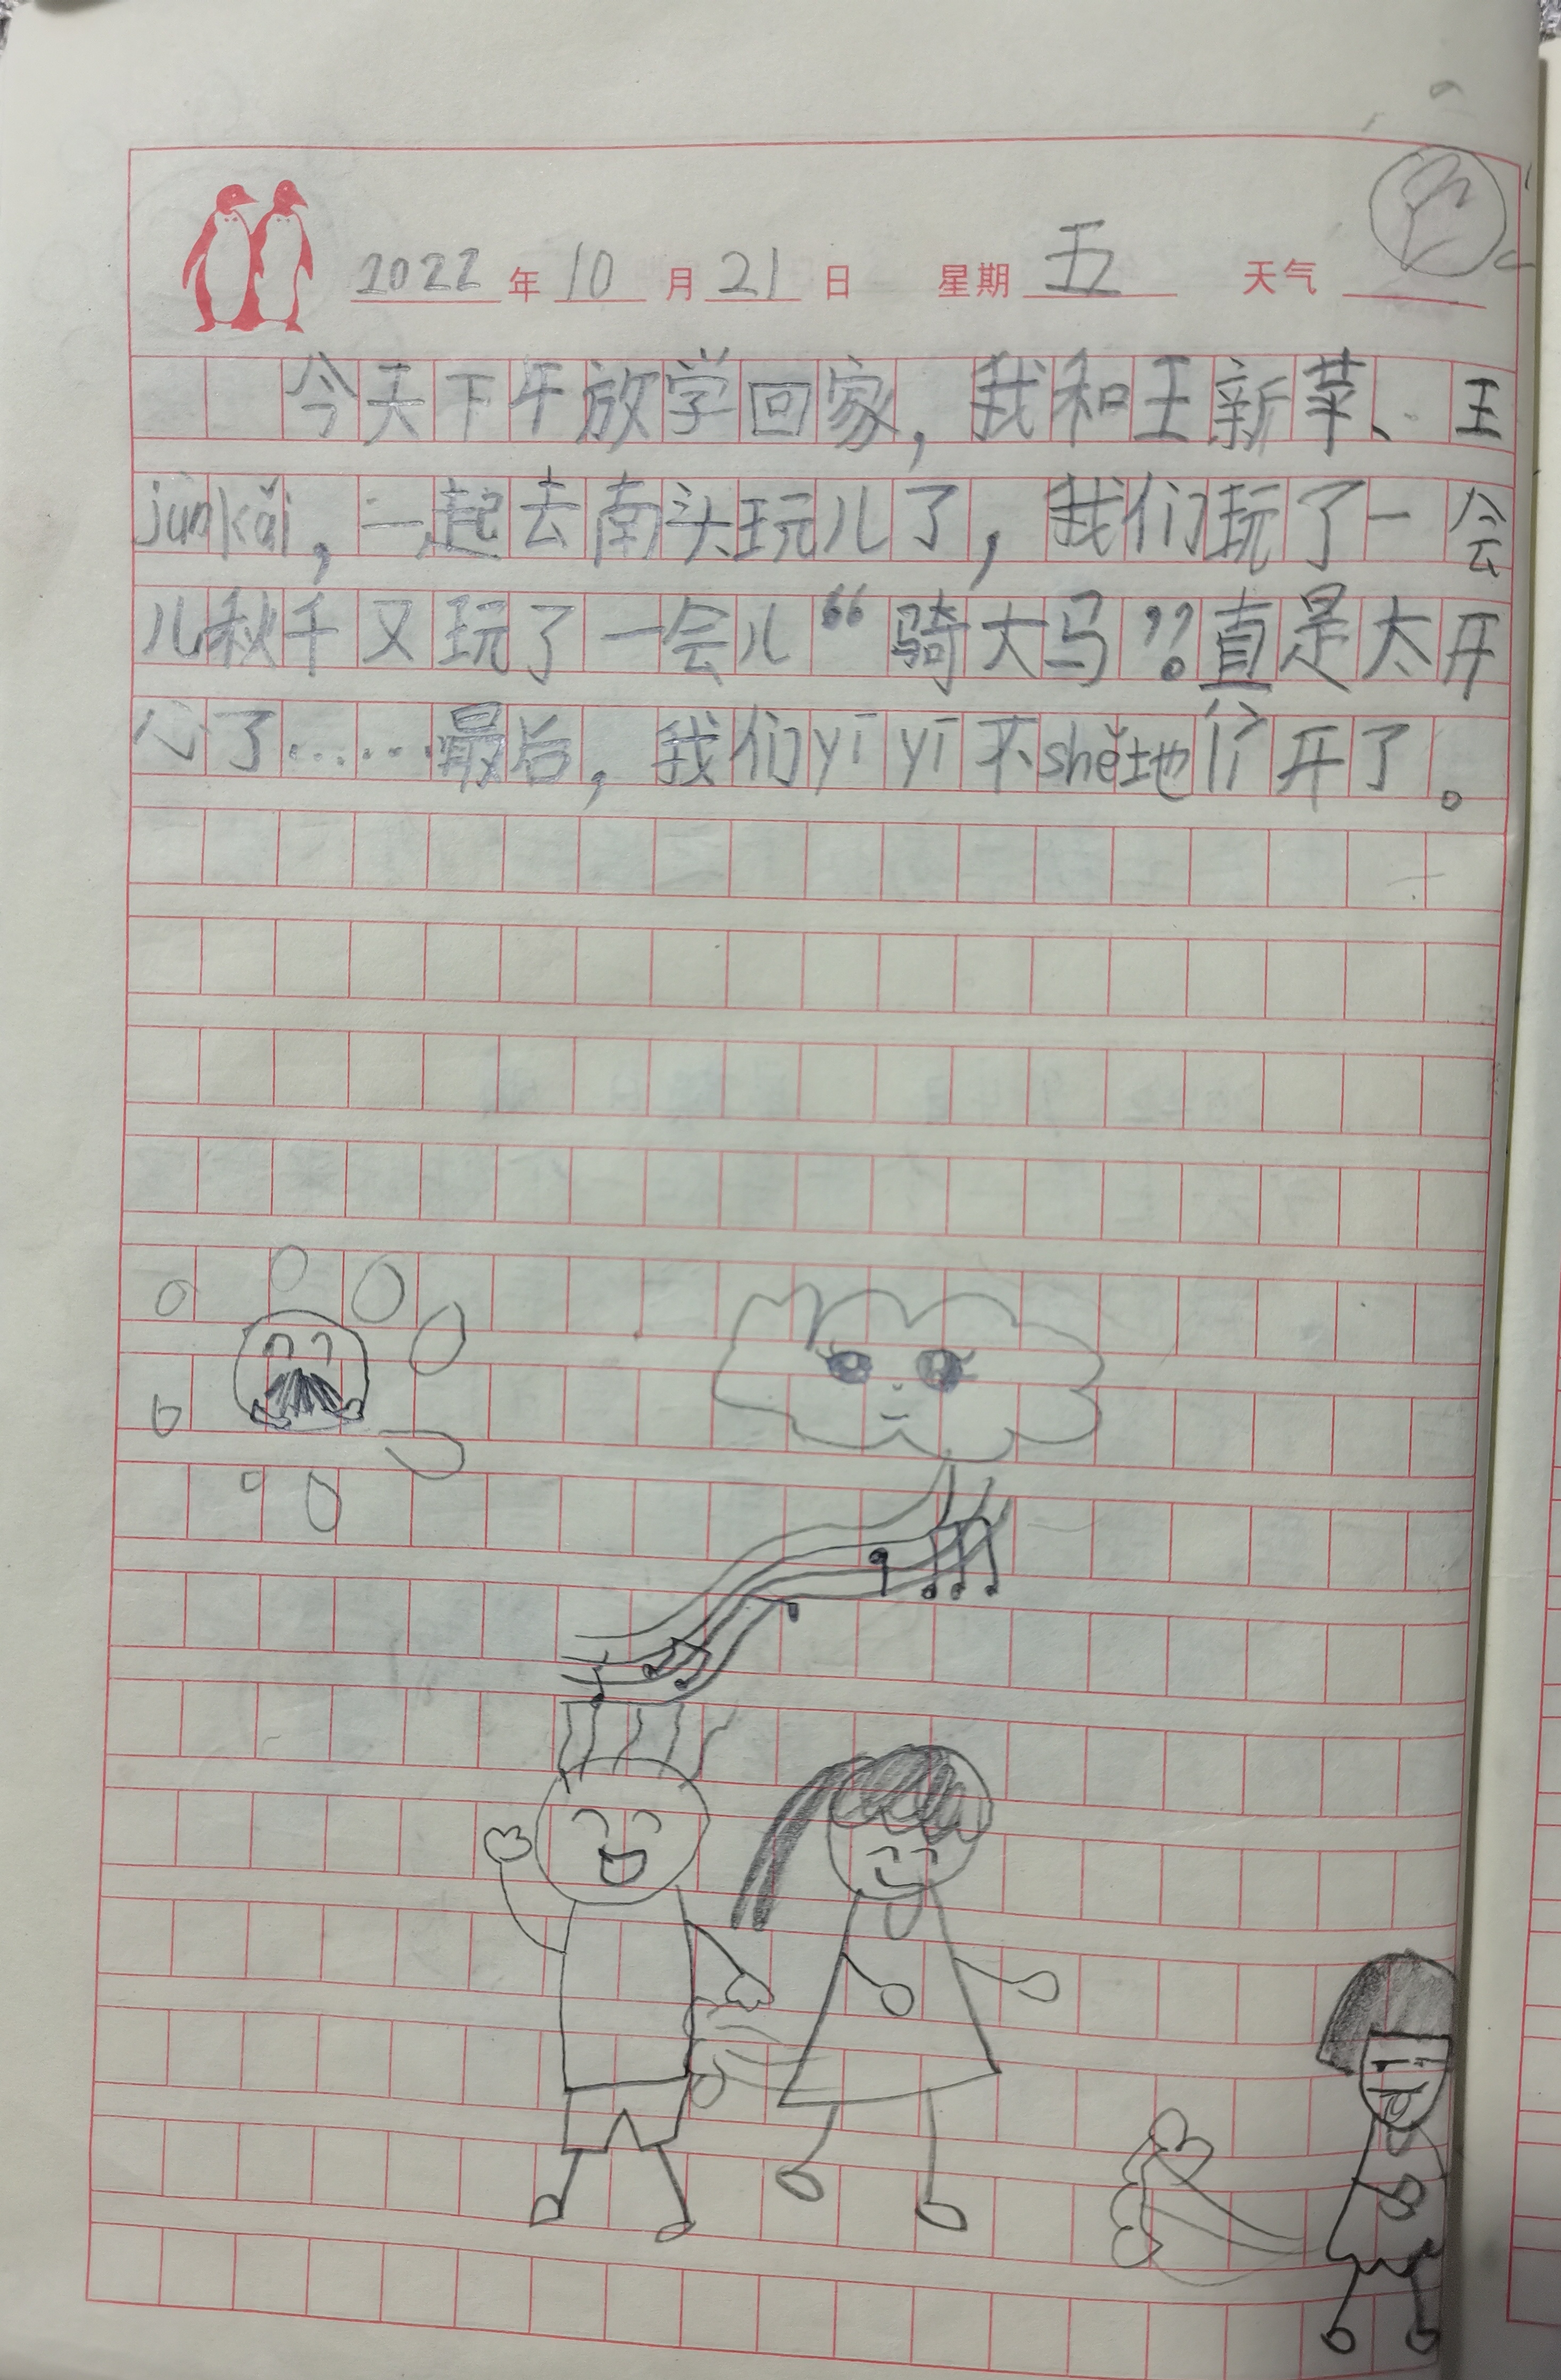 2022年10月21日 星期五 天气
今天下午放学回家，我和王新苹、王
junkǎi，一起去南头玩儿了，我们玩了一会
儿秋千又玩了一会儿“骑大马”。直是太开
心了……最后，我们yī yī不shě地开了。